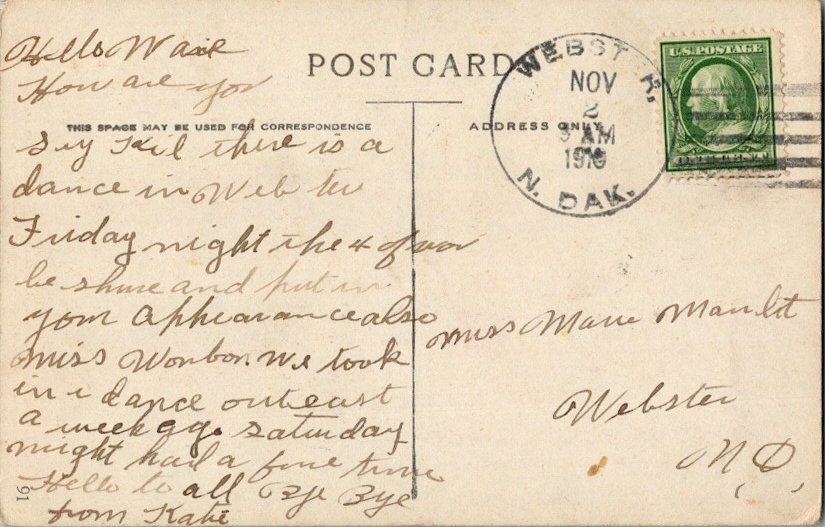 Hello
How are you
POST CARD
THIS SPACE MAY BE USED FOR CORRESPONDENCE
ADDRESS ONLY
WEBSTER, N. DAK.
NOV
2
AM
1910
U.S. POSTAGE
say Kid there is a
dance in Webster
Friday night the 4 of nov
be shure and put in
your Appearance also
Miss We took
in a dance out east
a week ago saturday
night had a fine time
Hello to all Bye Bye
from Katie
Miss Marie
Webster
N.D.
91